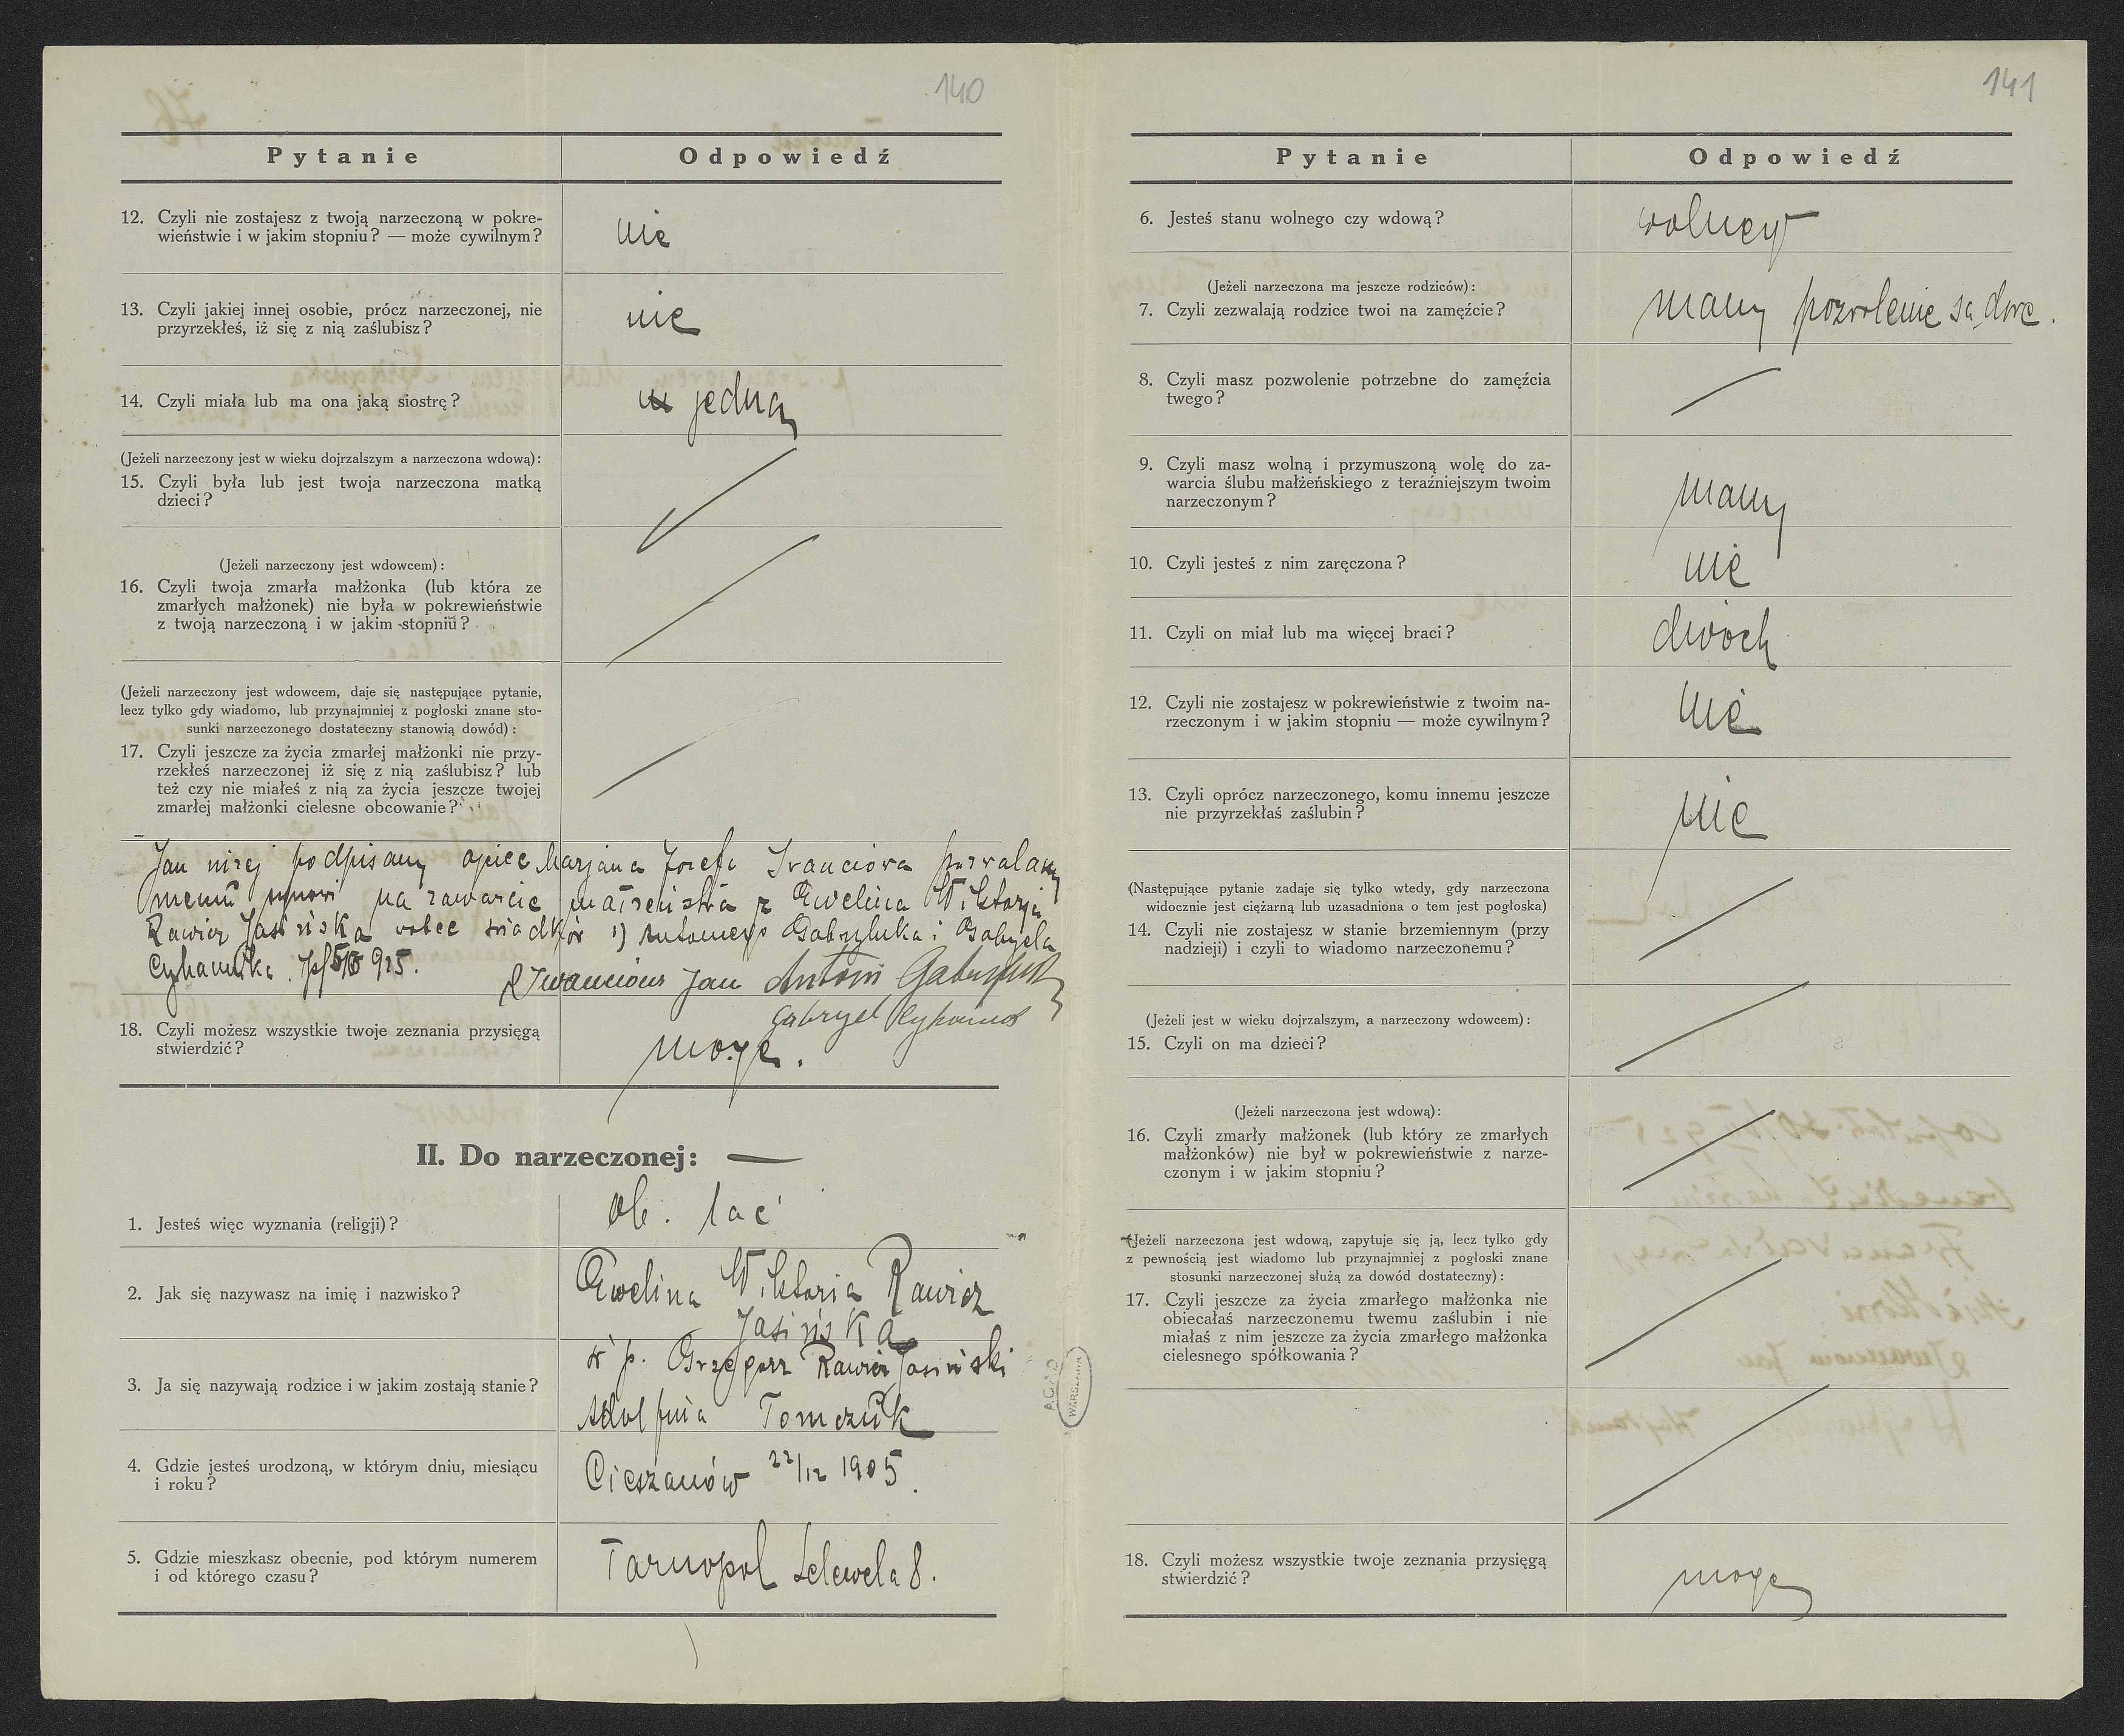 140
Pytanie Odpowiedź
12. Czyli nie zostajesz z twoją narzeczoną w pokre-
wieństwie i w jakim stopniu? — może cywilnym?
nie
13. Czyli jakiej innej osobie, prócz narzeczonej, nie
przyrzekłeś, iż się z nią zaślubisz?
nie
14. Czyli miała lub ma ona jaką siostrę?
jedną
(Jeżeli narzeczony jest w wieku dojrzalszym a narzeczona wdową):
15. Czyli była lub jest twoja narzeczona matką
dzieci?
(Jeżeli narzeczony jest wdowcem):
16. Czyli twoja zmarła małżonka (lub która ze
zmarłych małżonek) nie była w pokrewieństwie
z twoją narzeczoną i w jakim stopniu?
(Jeżeli narzeczony jest wdowcem, daje się następujące pytanie,
lecz tylko gdy wiadomo, lub przynajmniej z pogłoski znane sto-
sunki narzeczonego dostateczny stanowią dowód):
17. Czyli jeszcze za życia zmarłej małżonki nie przy-
rzekłeś narzeczonej iż się z nią zaślubisz? lub
też czy nie miałeś z nią za życia jeszcze twojej
zmarłej małżonki cielesne obcowanie?
Jan niżej podpisany ojciec Marjana Józefa Iwanciówa pozwalam
memu synowi na zawarcie małżeństwa z Eweliną Wiktorją
Rawicz Jasińską wobec świadków 1) Antoniego Gabryluka i Gabryela
925.
Iwanciów Jan Antoni
Gabryel
18. Czyli możesz wszystkie twoje zeznania przysięgą
stwierdzić?
mogę.
II. Do narzeczonej:
1. Jesteś więc wyznania (religji)?
ob. łać
2. Jak się nazywasz na imię i nazwisko?
Ewelina Wiktoria Rawicz
Jasińska
3. Ja się nazywają rodzice i w jakim zostają stanie?
ś p. Grzegorz Rawicz Jasiński
Adolfina Tomczuk
4. Gdzie jesteś urodzoną, w którym dniu, miesiącu
i roku?
Cieszanów 22/12 1905.
5. Gdzie mieszkasz obecnie, pod którym numerem
i od którego czasu?
Tarnopol Lelewela 8.
A.G.A.D
WARSZAWA
141
Pytanie Odpowiedź
6. Jesteś stanu wolnego czy wdową?
wolnego
(Jeżeli narzeczona ma jeszcze rodziców):
7. Czyli zezwalają rodzice twoi na zamęźcie?
mam pozwolenie
8. Czyli masz pozwolenie potrzebne do zamęźcia
twego?
9. Czyli masz wolną i przymuszoną wolę do za-
warcia ślubu małżeńskiego z teraźniejszym twoim
narzeczonym?
mam
10. Czyli jesteś z nim zaręczona?
nie
11. Czyli on miał lub ma więcej braci?
dwóch
12. Czyli nie zostajesz w pokrewieństwie z twoim na-
rzeczonym i w jakim stopniu — może cywilnym?
nie
13. Czyli oprócz narzeczonego, komu innemu jeszcze
nie przyrzekłaś zaślubin?
nie
(Następujące pytanie zadaje się tylko wtedy, gdy narzeczona
widocznie jest ciężarną lub uzasadniona o tem jest pogłoska)
14. Czyli nie zostajesz w stanie brzemiennym (przy
nadzieji) i czyli to wiadomo narzeczonemu?
(Jeżeli jest w wieku dojrzalszym, a narzeczony wdowcem):
15. Czyli on ma dzieci?
(Jeżeli narzeczona jest wdową):
16. Czyli zmarły małżonek (lub który ze zmarłych
małżonków) nie był w pokrewieństwie z narze-
czonym i w jakim stopniu?
(Jeżeli narzeczona jest wdową, zapytuje się ją, lecz tylko gdy
z pewnością jest wiadomo lub przynajmniej z pogłoski znane
stosunki narzeczonej służą za dowód dostateczny):
17. Czyli jeszcze za życia zmarłego małżonka nie
obiecałaś narzeczonemu twemu zaślubin i nie
miałaś z nim jeszcze za życia zmarłego małżonka
cielesnego spółkowania?
18. Czyli możesz wszystkie twoje zeznania przysięgą
stwierdzić?
mogę